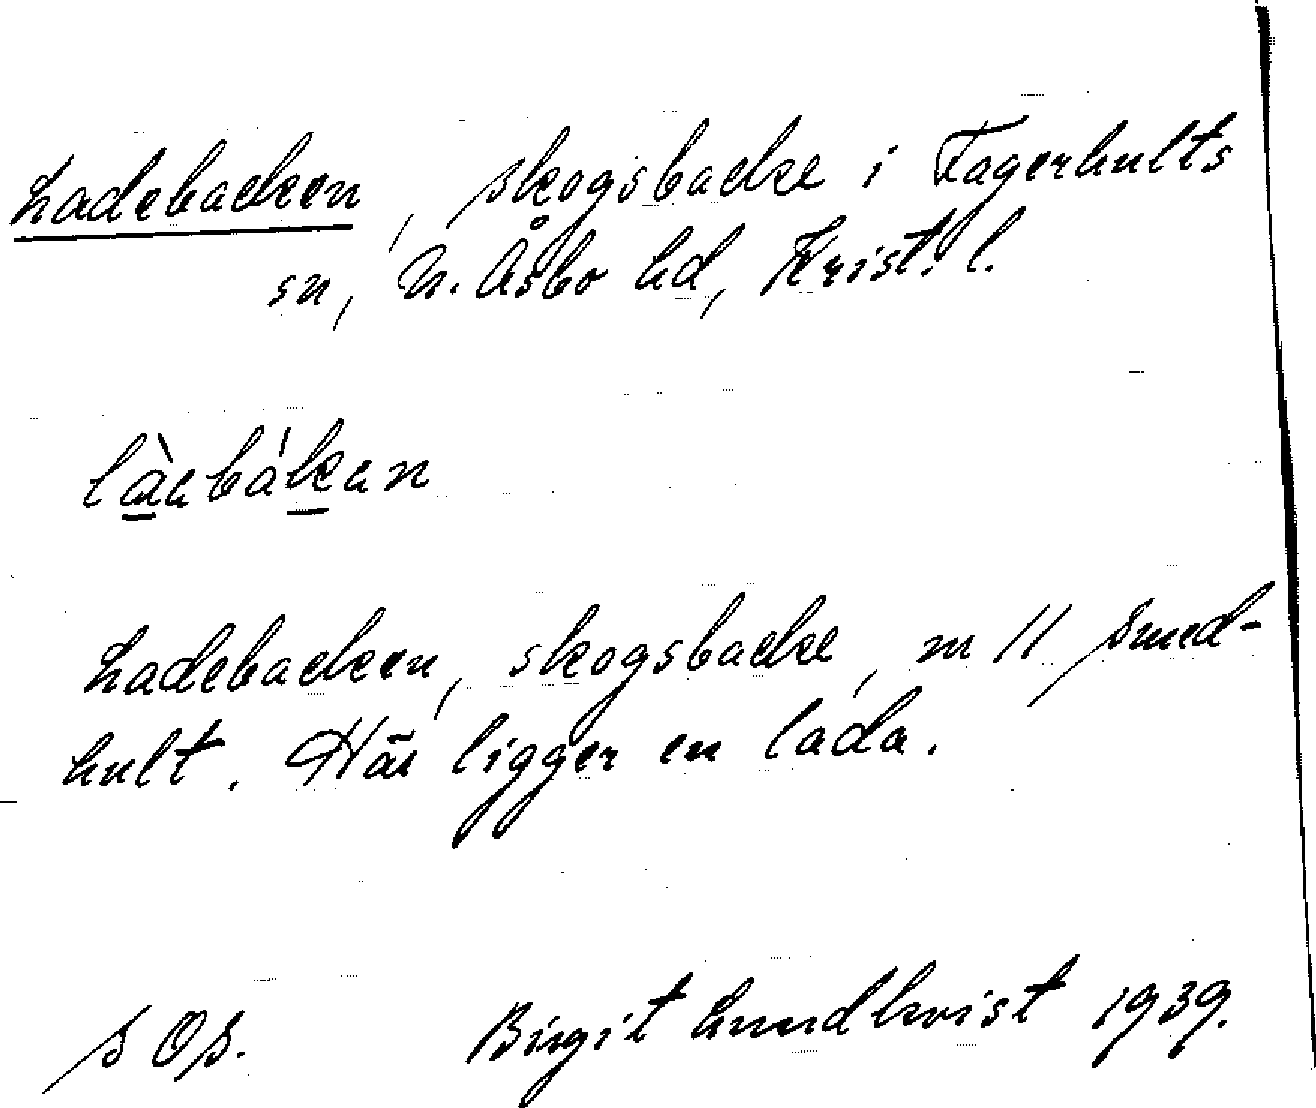 Ladebacken, skogsbacke i Fagerhults
sn, N. Åsbo hd, Krist. l.
làebákan
Ladebacken, skogsbacke, m 11 Smed-
hult. Här ligger en lada.
S OS. Birgit Lundkvist 1939.